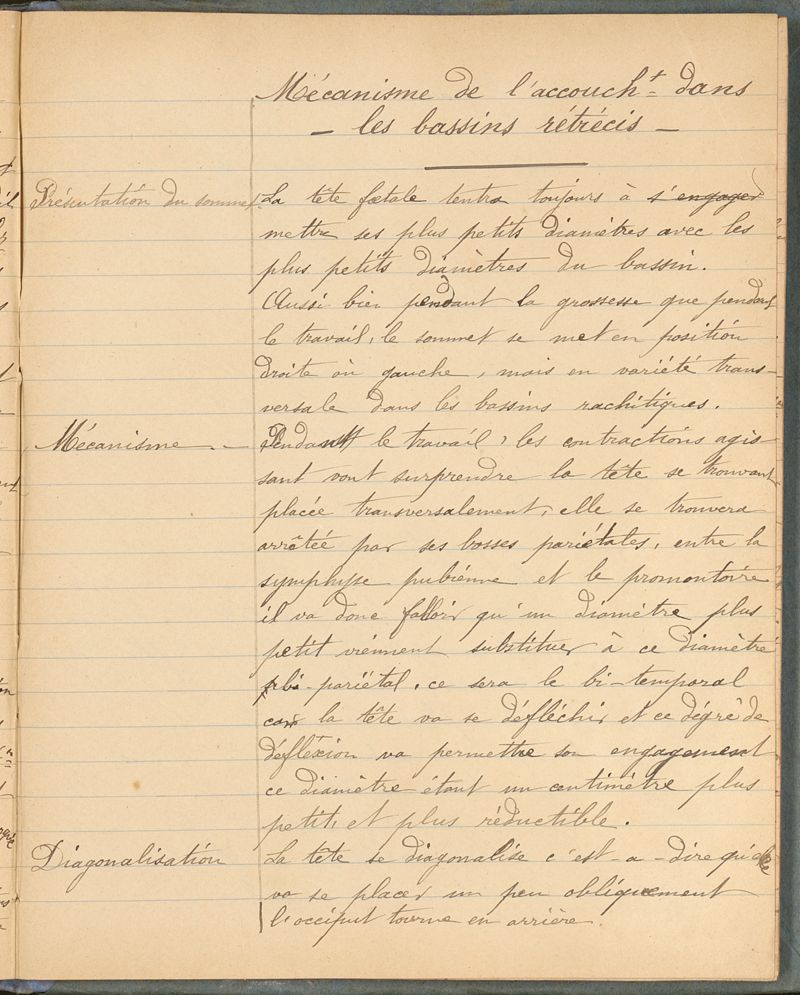 Mécanisme de l'accouch.t dans
- les bassins rétrécis -
Présentation du sommet.
La tête fœtale tentra toujours à s'engager
mettre ses plus petits diamètres avec les
plus petits diamètres du bassin.
Aussi bien pendant la grossesse que pendant
le travail, le sommet se met en position
droite où gauche, mais en variété trans-
versale dans les bassins rachitiques.
Mécanisme. -
Pendant le travail, les contractions agis
sant vont surprendre la tête se trouvant
placée transversalement, elle se trouvera
arrêtée par ses bosses pariétales, entre la
symphyse pubiénne et le promontoire
il va donc falloir qu'un diamètre plus
petit viennent substituer à ce diamètre
bi-pariétal, ce sera le bi-temporal
car la tête va se défléchir et ce dégré de
défléxion va permettre son engagement
ce diamètre étant un centimètre plus
petit, et plus réductible.
Diagonalisation
La tête se diagonalise c'est-a-dire qu'elle
va se placer un peu obliquement
l'occiput tourne en arrière.